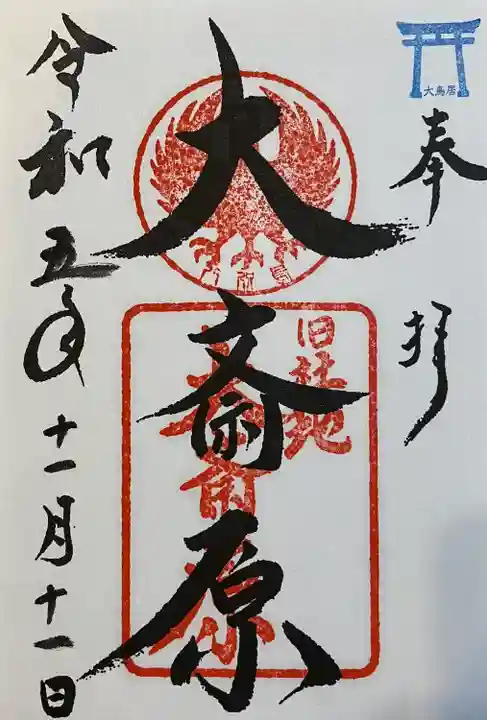 大鳥居
奉拝
大斎原
旧社地
令和五年十一月十一日